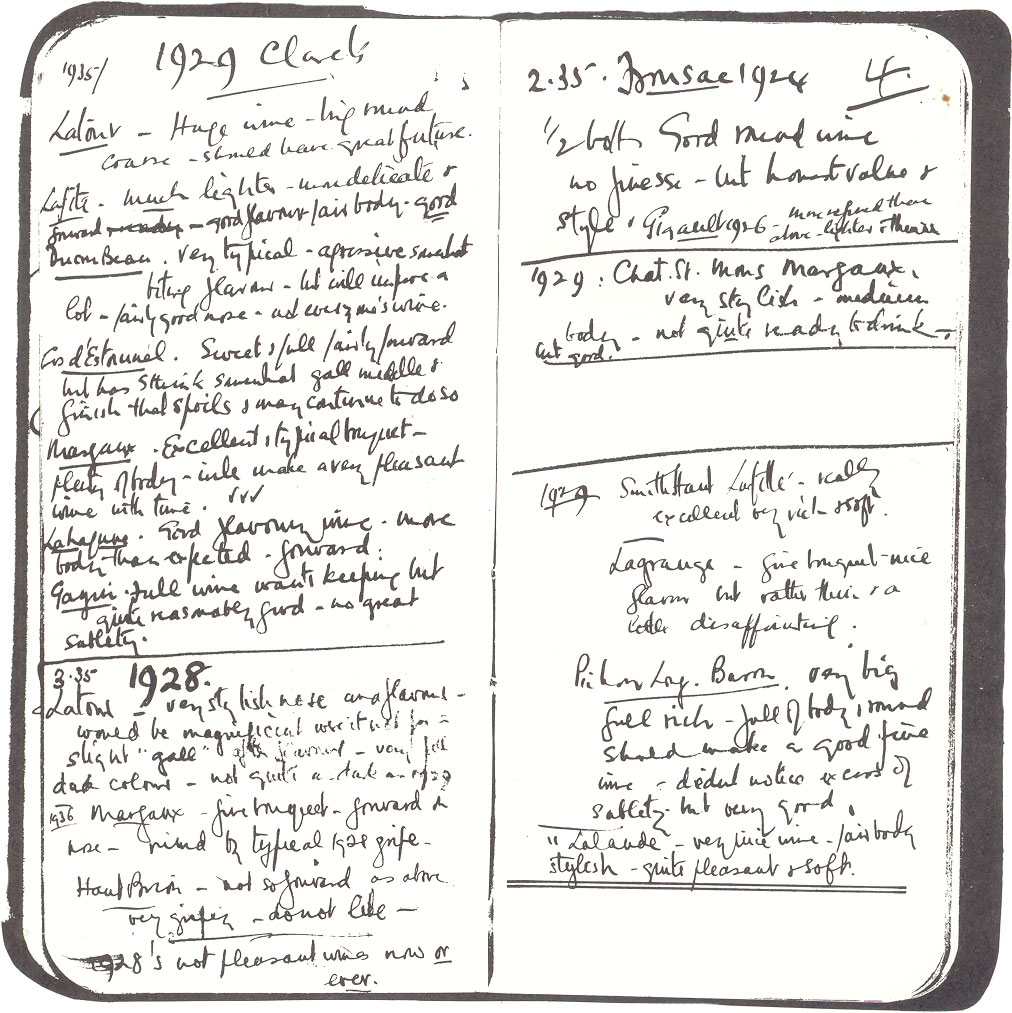 1935/ 1929 Clarets
Latour - Huge wine - big round
coarse - should have great future.
Lafite. much lighter - more delicate &
forward ready - good flavour fair body - good
. very typical - agressive somewhat
biting flavour - but will improve a
lot - fairly good nose - not everyone's wine.
Cos d'Estournel. Sweet & full fairly forward
but has I think somewhat gall middle &
finish that spoils & may continue to do so
Margaux. Excellent & typical bouquet -
plenty of body - will make a very pleasant
wine with time. √√√
Lalagune. Good flavoury wine - more
body than expected - forward.
Full wine wants keeping but
quite reasonably good - no great
subtlety.
3.35 1928.
Latour - very stylish nose and flavour -
would be magnificient were it not for a
slight "gall" after flavour - very full
dark colour - not quite as dark as 1929
1936 Margaux - fine bouquet - forward on
nose - ruined by typical 1928 gripe -
Haut Brion - not so forward as above
very gripey - do not like -
1928's not pleasant wines now or
ever.
2.35. Barsac 1924 4.
1/2 bott Good round wine
no finesse - but honest value &
style. Girault 1926 - more refined than
above - lighter & thinner
1929. Chat. St. Margaux.
very stylish - medium
body - not quite ready to drink -
but good.
1929 Smith Haut Lafitte - really
excellent very rich & soft.
Lagrange - fine bouquet - nice
flavour but rather thin & a
little disappointing.
Pichon Long. Baron. very big
full rich - full of body & round
should make a good fine
wine - didnt notice excess of
subtlety - but very good.
" Lalande - very nice wine - fair body
stylish - quite pleasant & soft.